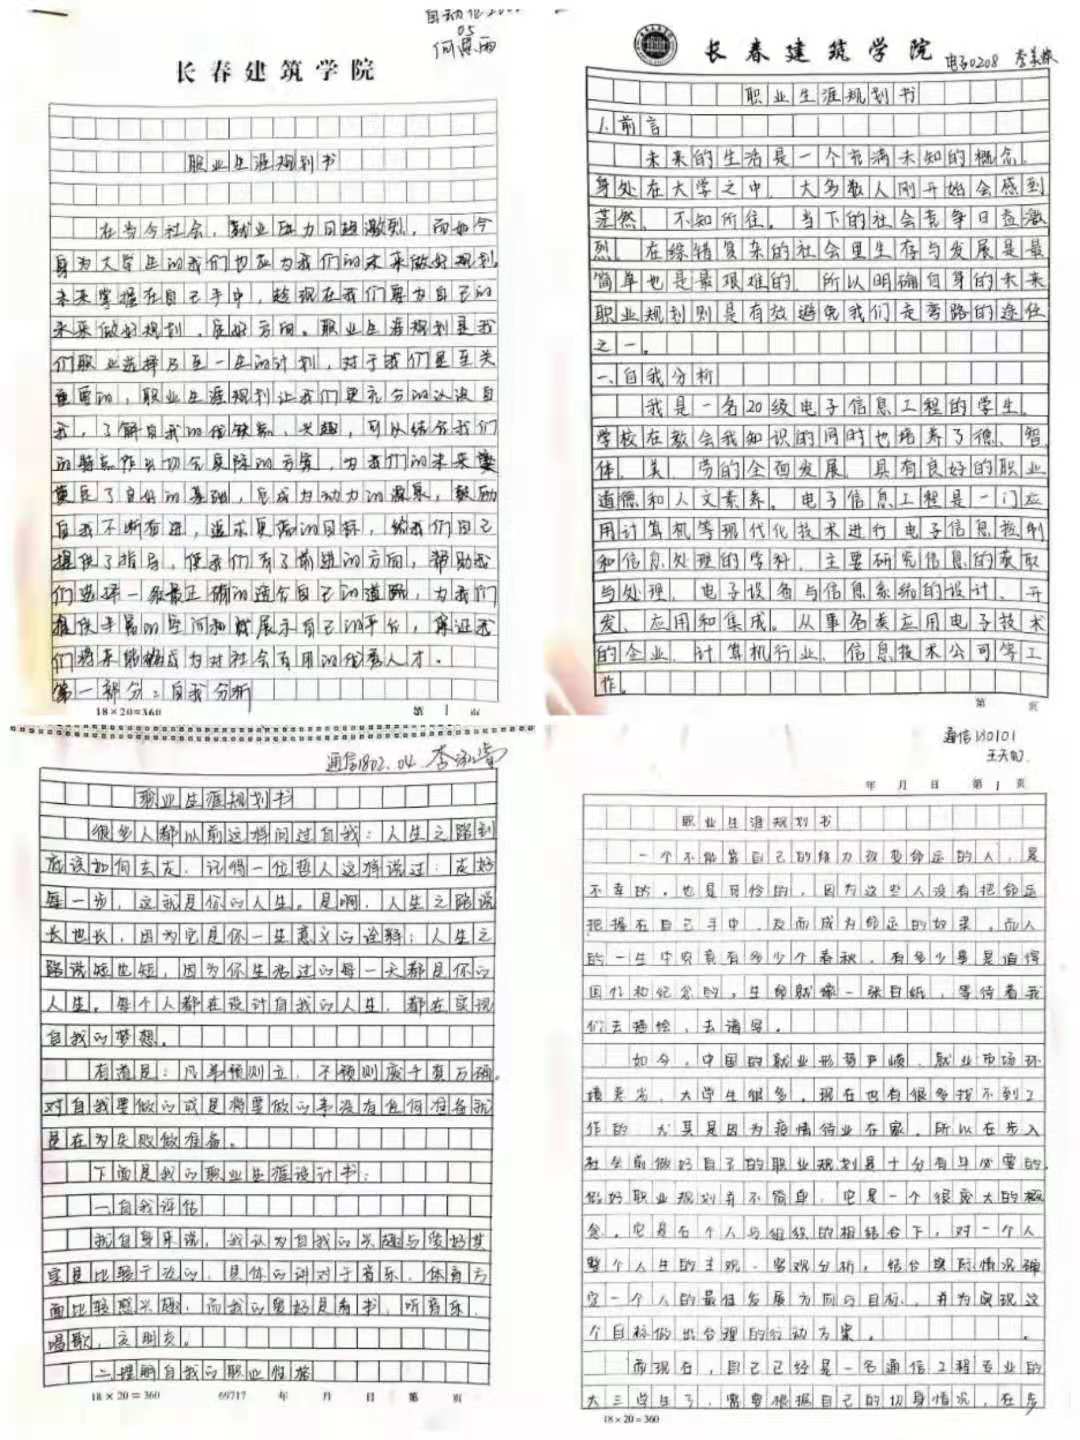 长春建筑学院
职业生涯规划书
在当今社会，就业压力日趋激烈，而如今
身为大学生的我们也应为我们的未来做好规划。
未来掌握在自己手中，趁现在我们要为自己的
未来做好规划，良好方向。职业生涯规划是我
们职业选择乃至一生的计划，对于我们是至关
重要的，职业生涯规划让我们更充分的认识自
我，了解自我的优缺点，兴趣，可以结合我们
的特点作出切合实际的方案，为我们的未来
奠定了良好的基础，它成为动力的源泉，鼓励
自我不断奋进，追求更高的目标，给我们自己
提供了指导，使我们有了前进的方向，帮助我
们选择一条最正确的适合自己的道路，为我们
提供丰富的空间和展示自己的平台，保证我
们将来能够成为对社会有用的优秀人才。
第一部分：自我分析
18×20=360 第 1 页
长春建筑学院
电子0208
职业生涯规划书
1.前言
未来的生活是一个充满未知的概念。
身处在大学之中，大多数人刚开始会感到
茫然，不知所往。当下的社会竞争日益激
烈，在综错复杂的社会里生存与发展是最
简单也是最艰难的，所以明确自身的未来
职业规划则是有效避免我们走弯路的途径
之一。
一、自我分析
我是一名20级电子信息工程的学生。
学校在教会我知识的同时也培养了德、智、
体、美、劳的全面发展。具有良好的职业
道德和人文素养。电子信息工程是一门应
用计算机等现代化技术进行电子信息控制
和信息处理的学科，主要研究信息的获取
与处理，电子设备与信息系统的设计、开
发、应用和集成。从事各类应用电子技术
的企业、计算机行业、信息技术公司等工
作。
第 页
通信1802.04
职业生涯规划书
很多人都以前这样问过自我：人生之路到
底该如何去走，记得一位哲人这样说过：走好
每一步，这就是你的人生。是啊，人生之路说
长也长，因为它是你一生意义的诠释；人生之
路说短也短，因为你生活过的每一天都是你的
人生。每个人都在设计自我的人生，都在实现
自我的梦想。
有道是：凡事预则立，不预则废千真万确。
对自我要做的或是将要做的事没有任何准备就
是在为失败做准备。
下面是我的职业生涯设计书：
一.自我评估
我自身来说，我认为自我的兴趣与爱好其
实是比较广泛的，具体的讲对于音乐、体育方
面比较感兴趣，而我的爱好是看书，听音乐，
唱歌，交朋友。
二.理解自我的职业性格
18×20=360 69717 年 月 日 第 页
通信180101
年 月 日 第 1 页
职业生涯规划书
一个不能靠自己的能力改变命运的人，是
不幸的，也是可怜的，因为这些人没有把命运
把握在自己手中，反而成为命运的奴隶。而人
的一生中究竟有多少个春秋，有多少事是值得
回忆和纪念的。生命就像一张白纸，等待着我
们去描绘，去谱写。
如今，中国的就业形势严峻，就业市场环
境恶劣，大学生很多，现在也有很多找不到工
作的，尤其是因为疫情待业在家。所以在步入
社会前做好自己的职业规划是十分有必要的。
做好职业规划并不简单，它是一个很庞大的概
念，它是在个人与组织的相结合下，对一个人
整个人生的主观、客观分析，结合实际情况确
定一个人的最佳发展方向与目标，并为实现这
个目标做出合理的行动方案。
而现在，自己已经是一名通信工程专业的
大三学生了，需要根据自己的切身情况，在步
18×20=360